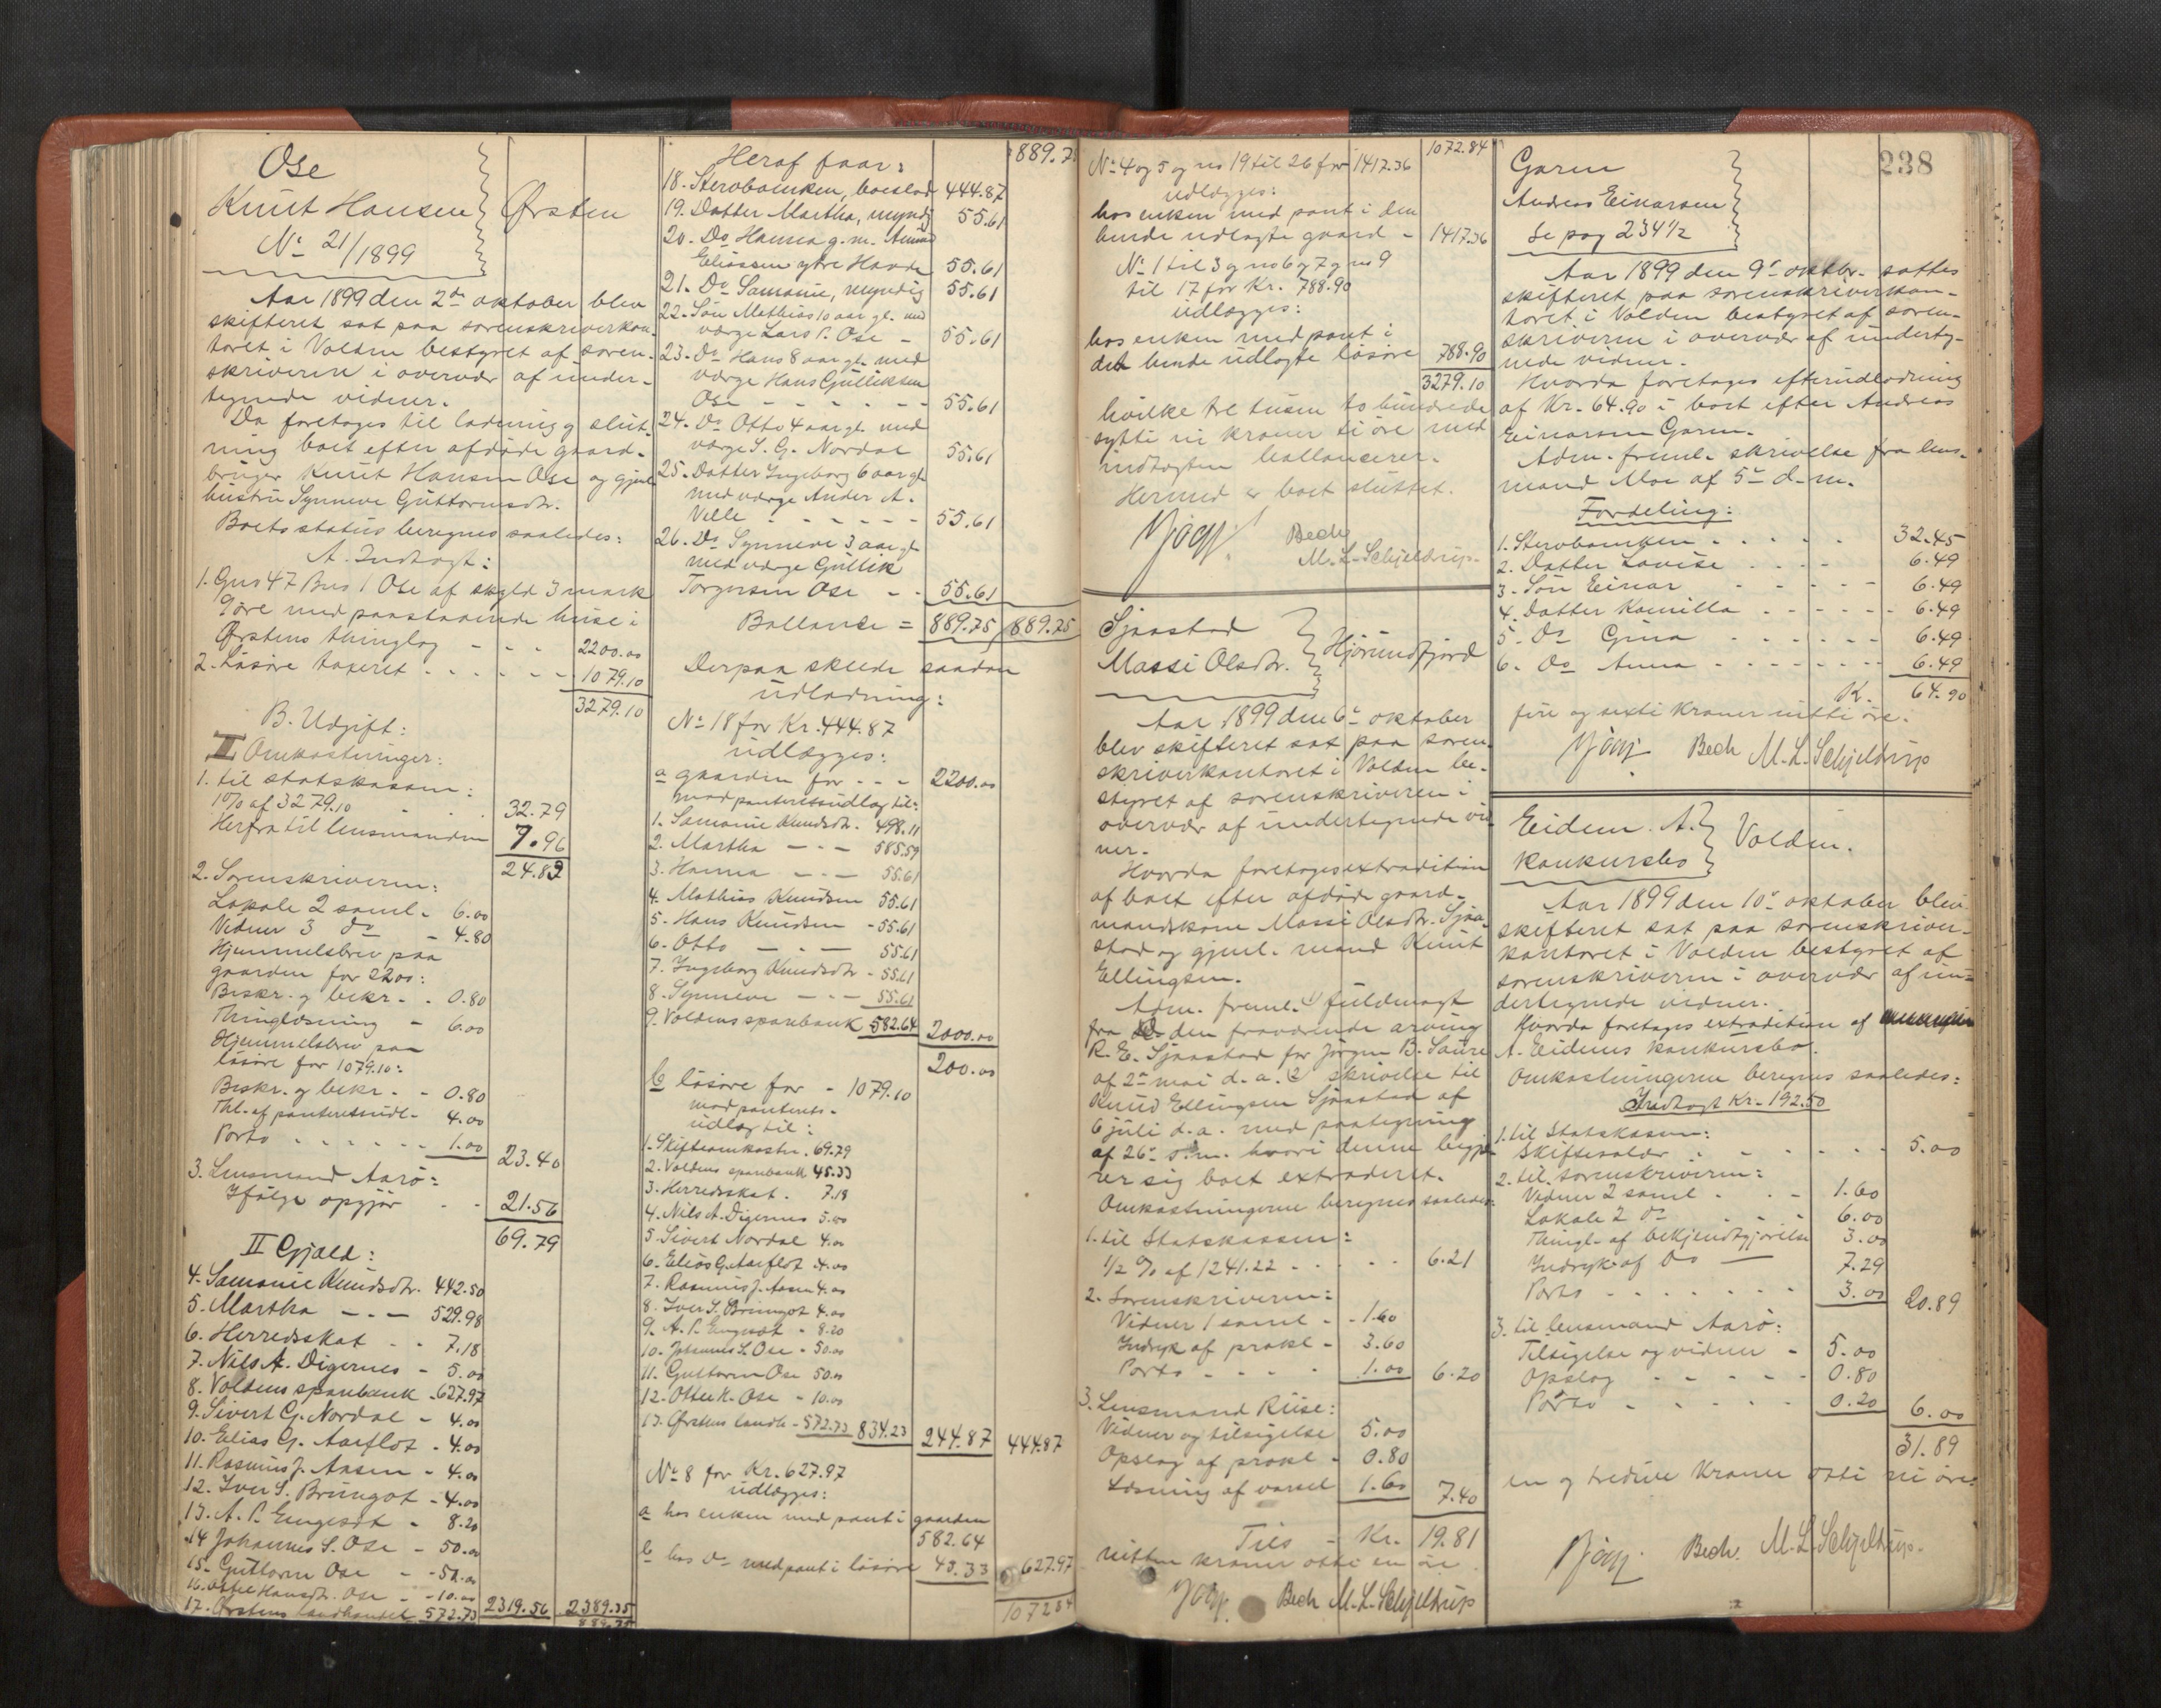 Ose
Knut Hansen Ørsten
No 21/1899
Aar 1899 den 2den oktober blev
skifteret sat paa sorenskriverkon-
toret i Volden bestyret af soren-
skriveren i overvær af under-
tegnede vidner.
Da foretages til lodning og slut-
ning boet efter afdøde gaard-
bruger Knut Hansen Ose og gjenl.
hustru Synneve Guttormsdtr.
Boets status beregnes saaledes:
A. Indtægt:
1. Gno 47 Bno 1 Ose af skyld 3 mark
9 øre med paastaaende huse i
Ørstens thinglag - - - 2200.00
2. Løsøre taxeret - - - - - - 1079.10
3279.10
B. Udgift:
I Omkostninger:
1. til statskassen:
1% af 3279.10 32.79
Herfra til lensmanden 7.96
24.83
2. Sorenskriveren:
Lokale 2 saml. - 6.00
Vidner 3 do - 4.80
Hjemmelsbrev paa
gaarden for 2200:
Beskr. og bekr. - - 0.80
Thinglæsning - 6.00
Hjemmelsbrev paa
løsøre for 1079.10:
Beskr. og bekr. - - 0.80
Thl. af panteretsudl. - 4.00
Porto - - - - - - 1.00 23.40
3. Lensmand Aarø:
Ifølge opgjør - - 21.56
69.79
II Gjæld:
4. Samonie Knudsdtr. 442.50
5. Martha — - — 529.98
6. Herredsskat - - 7.18
7. Nils A. Digernes - 5.00
8. Voldens sparebank - 627.97
9. Sivert G. Nordal - 4.00
10. Elias G. Aarflot - 4.00
11. Rasmus J. Aasen - 4.00
12. Iver S. Brungot - 4.00
13. A. P. Engeset - 8.20
14 Johannes S. Ose - 50.00
15. Guttorm Ose - - 50.00
16. Ottel Hansdtr. Ose - - 10.00
17. Ørstens landhandel 572.73 2319.56 2389.35
889.75
889.75
Heraf faar:
18. Stervboenken, boeslod 444.87
19. Datter Martha, myndig 55.61
20. Do Hanna g. m. Amund
Eliassen ytre Hovde 55.61
21. Do Samonie, myndig 55.61
22. Søn Mathias 10 aar gl. med
værge Lars P. Ose - 55.61
23. Do Hans 8 aar gl. med
værge Hans Gulliksen
Ose - - - - - - 55.61
24. Do Otto 4 aar gl. med
værge S. G. Nordal 55.61
25. Datter Ingeborg 6 aar gl.
med værge Anders A.
Velle - - - - - - 55.61
26. Do Synneve 3 aar gl.
med værge Gullik
Torgersen Ose - - 55.61
Ballance = 889.75 889.75
Derpaa skeede saadan
udlodning:
No 18 for Kr. 444.87
udlægges:
a gaarden for - - - 2200.00
mod panteretsudlæg til:
1. Samonie Knudsdtr. 498.11
2. Martha — - — 585.59
3. Hanna — - — 55.61
4. Mathias Knudsen 55.61
5. Hans Knudsen - 55.61
6. Otto — - — 55.61
7. Ingeborg Knudsdtr - 55.61
8. Synneve — - — 55.61
9. Voldens sparebank 582.64 2000.00
200.00
b løsøre for - 1079.10
mod panterets-
udlæg til:
1. Skifteomkostn. 69.79
2. Voldens sparebank 45.33
3. Herredsskat. 7.18
4. Nils A. Digernes 5.00
5. Sivert Nordal 4.00
6. Elias G. Aarflot 4.00
7. Rasmus J. Aasen 4.00
8. Iver S. Brungot 4.00
9. A. P. Engeset - 8.20
10. Johannes S. Ose - 50.00
11. Guttorm Ose 50.00
12. Ottel H. Ose - 10.00
13. Ørstens landh. - 572.73 834.23 244.87 444.87
No 8 for Kr. 627.97
udlægges:
a hos enken med pant i gaarden
582.64
b hos do med pant i løsøre 45.33 627.97
1072.84
1072.84
No 4 og 5 og no 19 til 26 for 1417.36
udlægges:
hos enken med pant i den
hende udlagte gaard - 1417.36
No 1 til 3 og no 6 og 7 og no 9
til 17 for Kr. 788.90
udlægges:
hos enken med pant i
det hende udlagte løsøre 788.90
3279.10
hvilke tre tusen to hundrede
sytti ni kroner ti øre med
indtægten ballancerer.
Hermed er boet sluttet.
Bech
M. L. Schjeldrup.
Sjaastad
Massi Olsdtr. Hjørundfjord
Aar 1899 den 6te oktober
blev skifteret sat paa soren-
skriverkontoret i Volden be-
styret af sorenskriveren i
overvær af undertegnede vid-
ner.
Hvorda foretages extradition
af boet efter afdøde gaard-
mandskone Massi Olsdtr. Sjaa-
stad og gjenl. mand Knut
Ellingsen.
Adm. freml. 1) fuldmagt
fra den fraværende arving
R. E. Sjaastad for Jørgen B. Saure
af 2den mai d. a. 2) skrivelse til
Knud Ellingsen Sjaastad af
6 juli d. a. med paategning
af 26de s. m. hvori denne begjæ-
rer sig boet extraderet.
Omkostningerne beregnes saaledes:
1. til Statskassen:
1/2 % af 1241.22 - - - - 6.21
2. Sorenskriveren:
Vidner 1 saml. - - 1.60
Indryk. af prokl. - 3.60
Porto - - - - 1.00 6.20
3. Lensmand Riise:
Vidner og tilsigelse 5.00
Opslag af prokl. - 0.80
Læsning af varsel 1.60 7.40
Tils - Kr. 19.81
nitten kroner otti en øre
Bech M. L. Schjeldrup
238
Garen
Andreas Einarsen
Se pag 234 1/2
Aar 1899 den 9de oktbr. sattes
skifteret paa sorenskriverkon-
toret i Volden bestyret af soren-
skriveren i overvær af underteg-
nede vidner.
Hvorda foretages efterudlodning
af Kr. 64.90 i boet efter Andreas
Einarsen Garen.
Adm. freml. skrivelse fra lens-
mand Moe af 5te d. m.
Fordeling:
1. Stervboenken - - - - - 32.45
2. Datter Lovise - - - - 6.49
3. Søn Einar - - - - - 6.49
4. Datter Kamilla - - - - - - 6.49
5. Do Gina - - - - - - 6.49
6. Do Anna - - - - - - - 6.49
K. 64.90
fire og sexti kroner nitti øre.
Bech M. L. Schjeldrup
Eidem. A.
konkursbo Volden.
Aar 1899 den 10de oktober blev
skifteret sat paa sorenskriver-
kontoret i Volden bestyret af
sorenskriveren i overvær af un-
dertegnede vidner.
Hvorda foretages extradition af
A. Eidems konkursbo.
Omkostningerne beregnes saaledes:
Indtægt Kr. 192.50
1. til Statskassen:
Skiftesalær - - - - - - 5.00
2. til sorenskriveren:
Vidner 2 saml. - - - 1.60
Lokale 2 do - - - 6.00
Thingl. af bekjendtgjørelse 3.00
Indryk. af do — 7.29
Porto - - - - - - - 3.00 20.89
3. til lensmand Aarø:
Tilsigelse og vidner - 5.00
Opslag - - - - - 0.80
Porto - - - - - - 0.20 6.00
31.89
en og tredive kroner otti ni øre.
Bech. M. L. Schjeldrup.